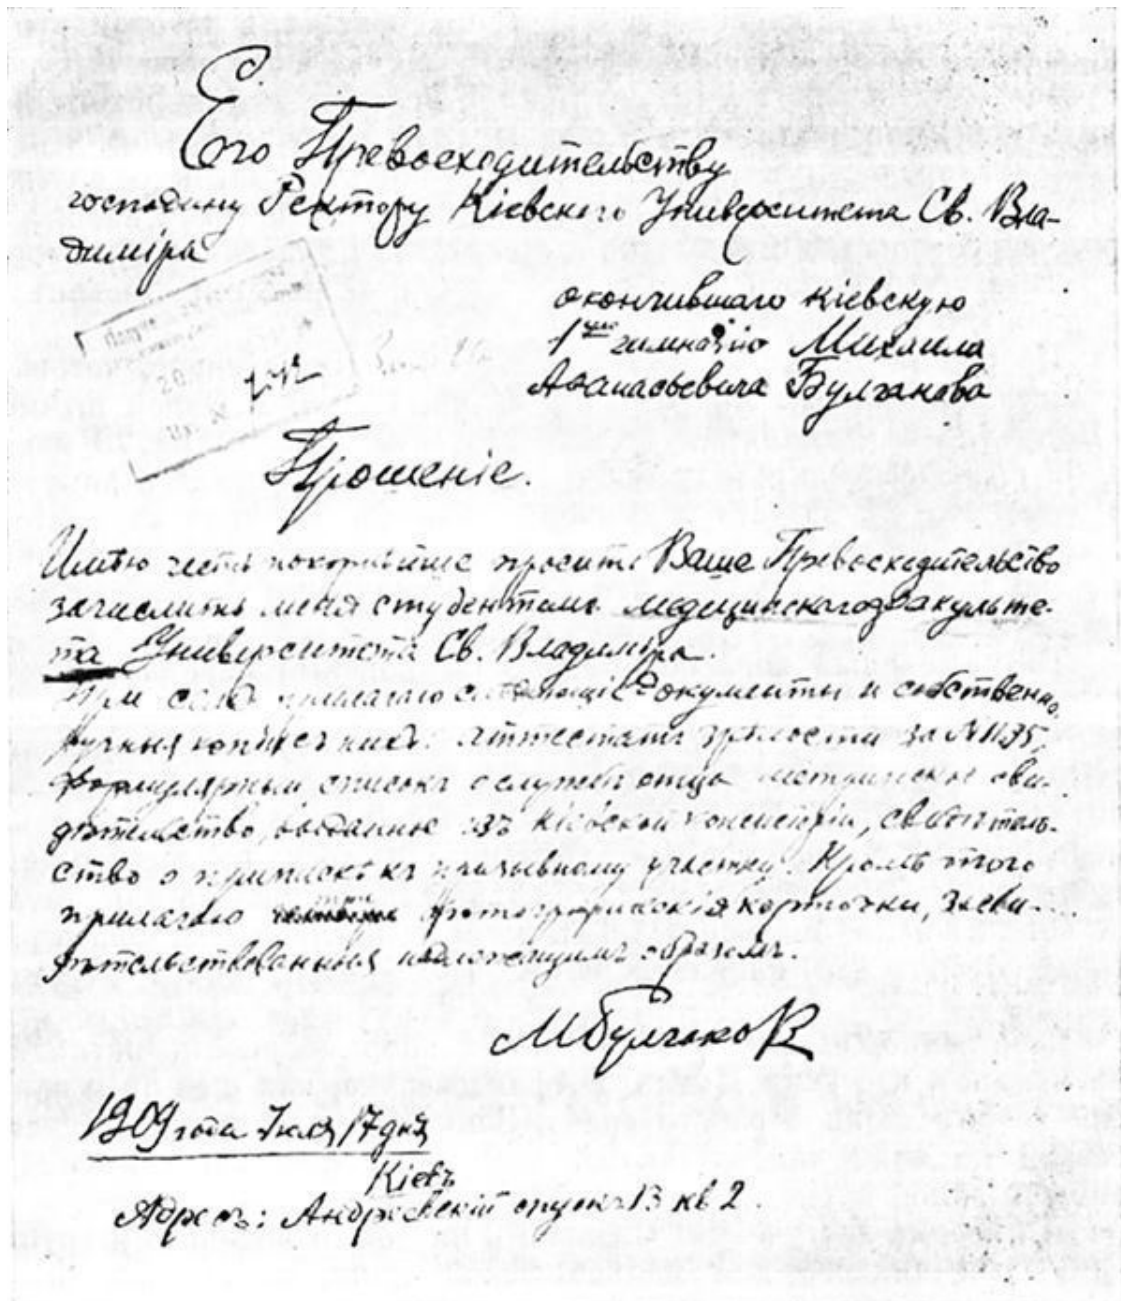 Его Превосходительству
господину Ректору Кіевского Университета Св. Вла-
димiра
окончившаго кіевскую
1ую гимназію Михаила
Аѳанасьевича Булгакова
Прошеніе.
Имѣю честь покорнѣйше просить Ваше Превосходительство
зачислить меня студентомъ медицинскаго факульте-
та Университета Св. Владиміра.
При семъ прилагаю слѣдующіе документы и собственно
ручныя копіи съ нихъ: Аттестатъ зрѣлости за №1195,
формулярный списокъ о службѣ отца метрическое сви-
дѣтельство, выданное изъ Кіевской консисторіи, свидѣтель-
ство о припискѣ къ призывному участку. Кромѣ того
прилагаю три фотографическія карточки, засви-
дѣтельствованныя надлежащимъ образомъ.
МБулгаковъ
1909 года Іюля 17 дня
Кіевъ
Адресъ: Андреевскій спускъ 13 кв 2.